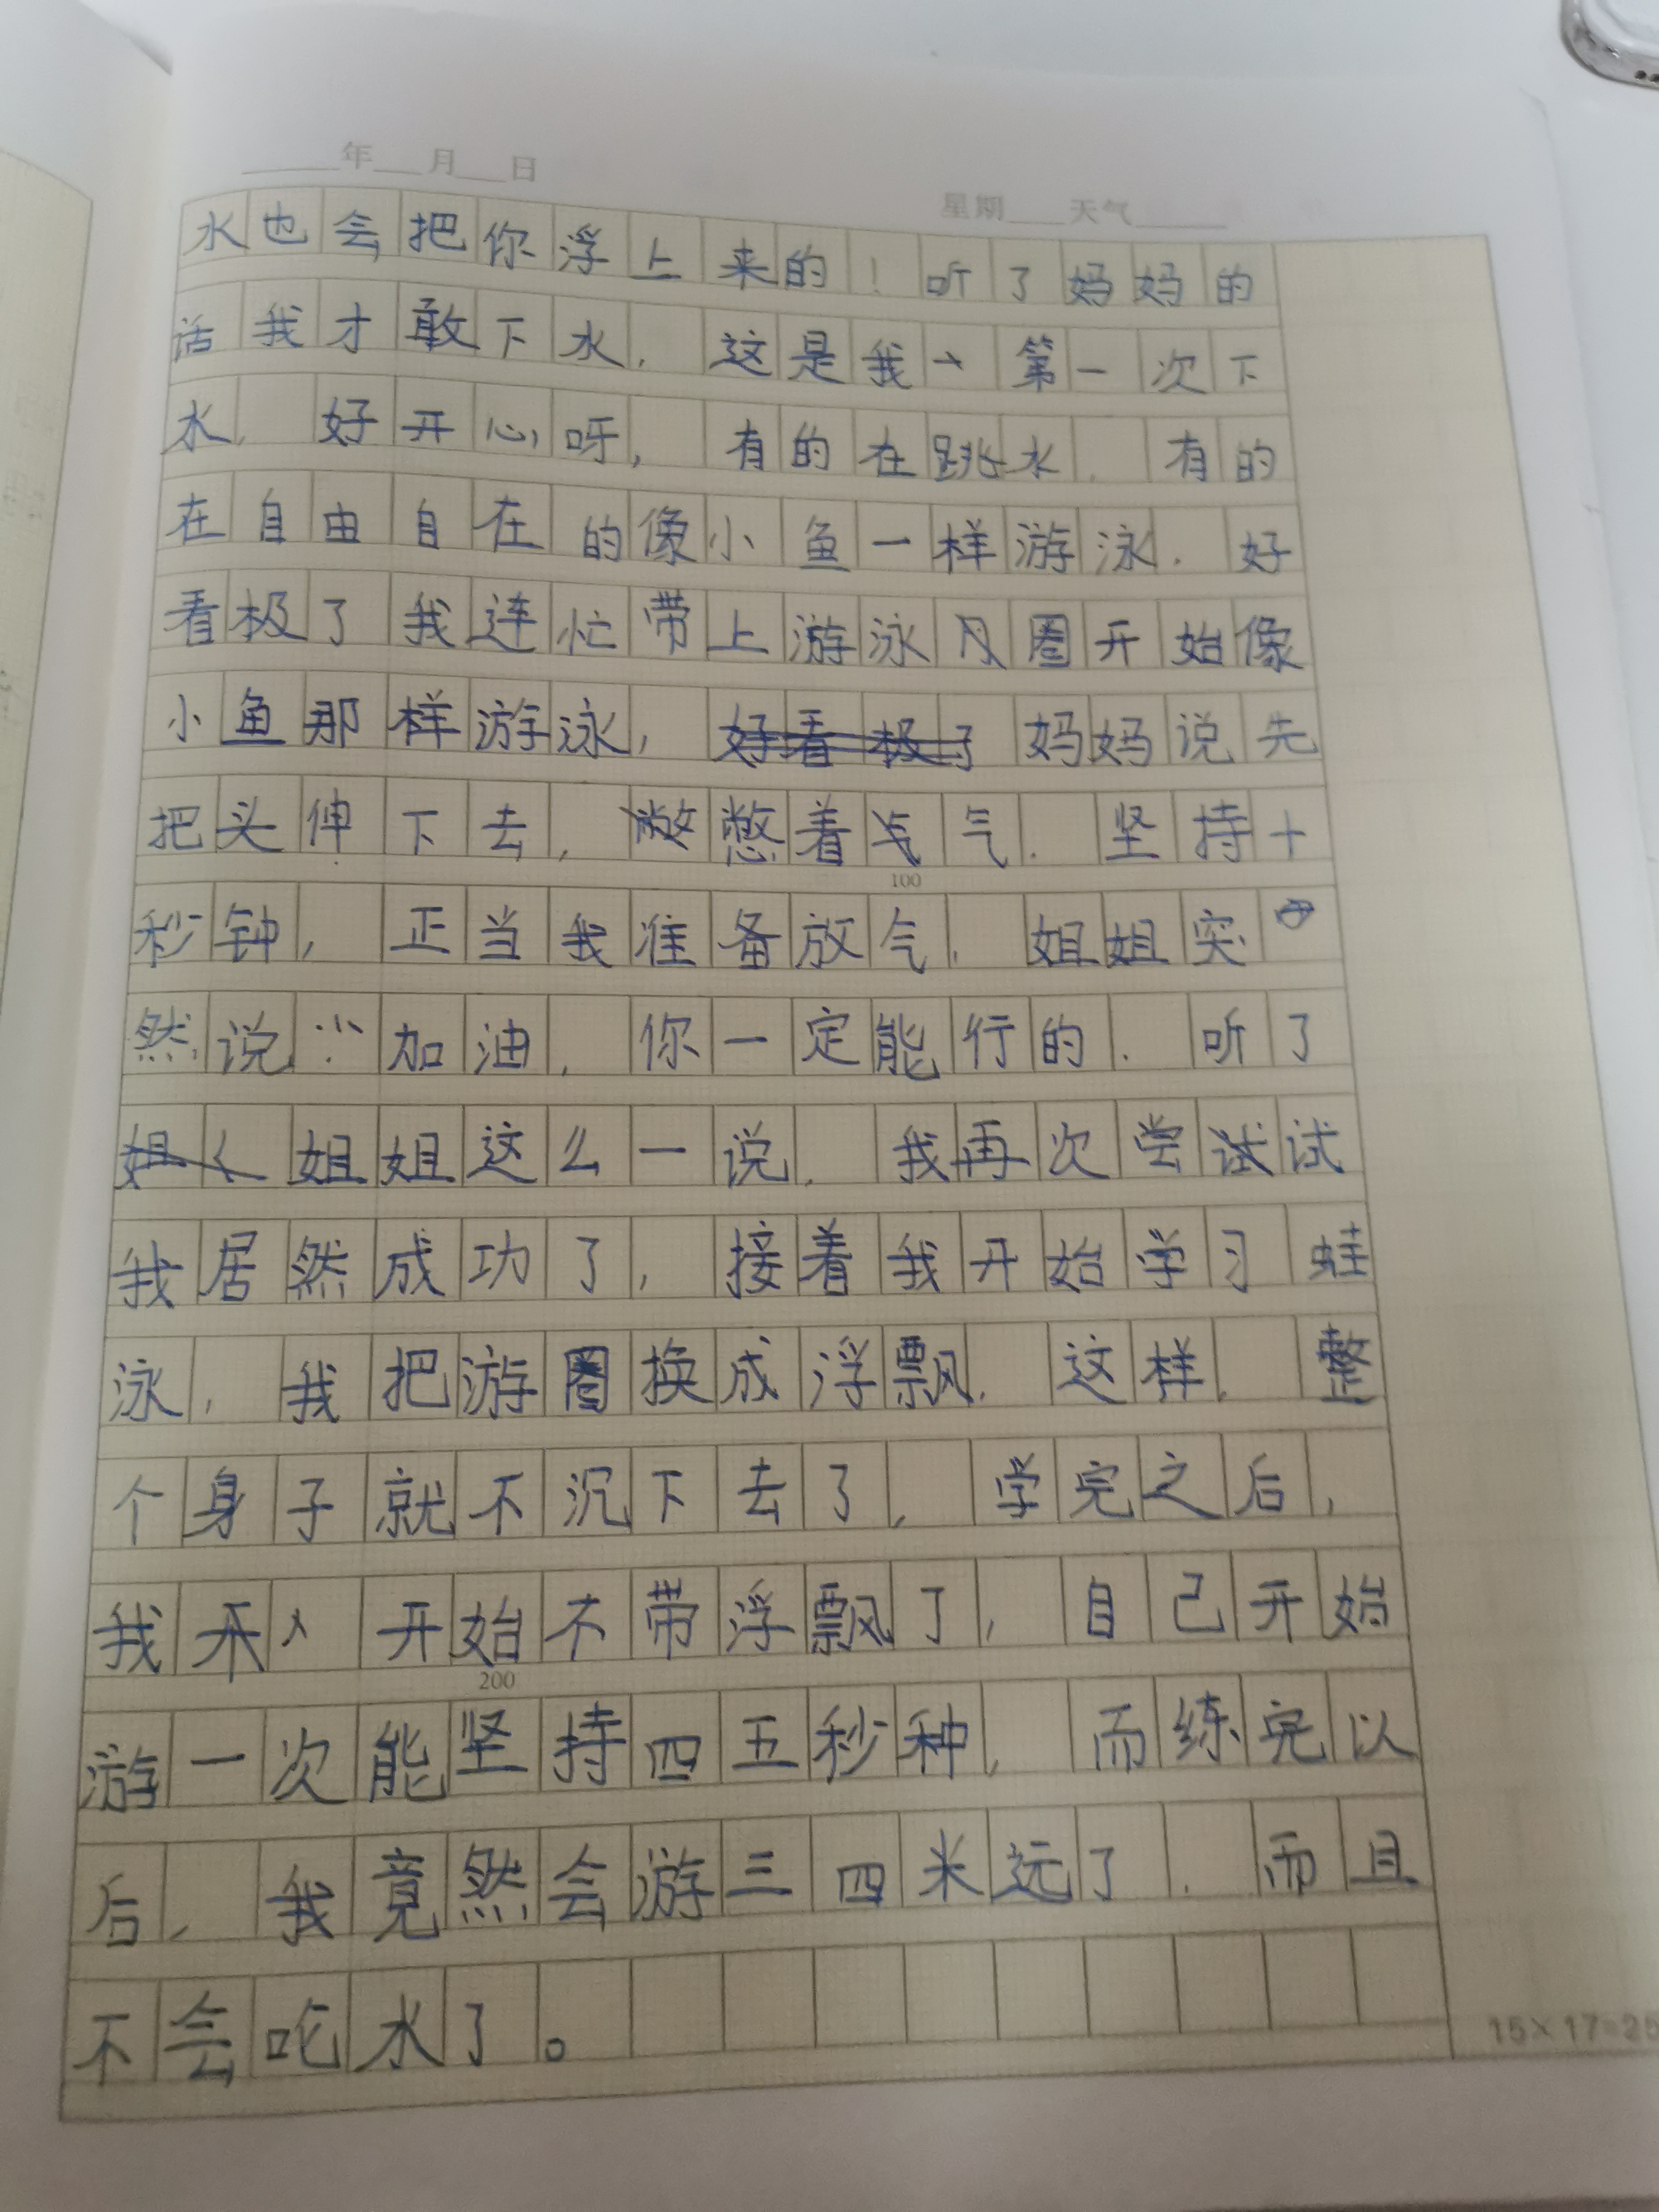 ____年___月___日
星期___天气______
水也会把你浮上来的！听了妈妈的
话我才敢下水，这是我第一次下
水，好开心呀，有的在跳水，有的
在自由自在的像小鱼一样游泳，好
看极了我连忙带上游泳圈开始像
小鱼那样游泳，妈妈说先
把头伸下去，憋着气，坚持十
100
秒钟，正当我准备放气，姐姐突
然说：加油，你一定能行的，听了
姐姐这么一说，我再次尝试
我居然成功了，接着我开始学习蛙
泳，我把游圈换成浮飘，这样，整
个身子就不沉下去了，学完之后，
我开始不带浮飘了，自己开始
200
游一次能坚持四五秒种，而练完以
后，我竟然会游三四米远了，而且
不会吃水了。
15×17=25